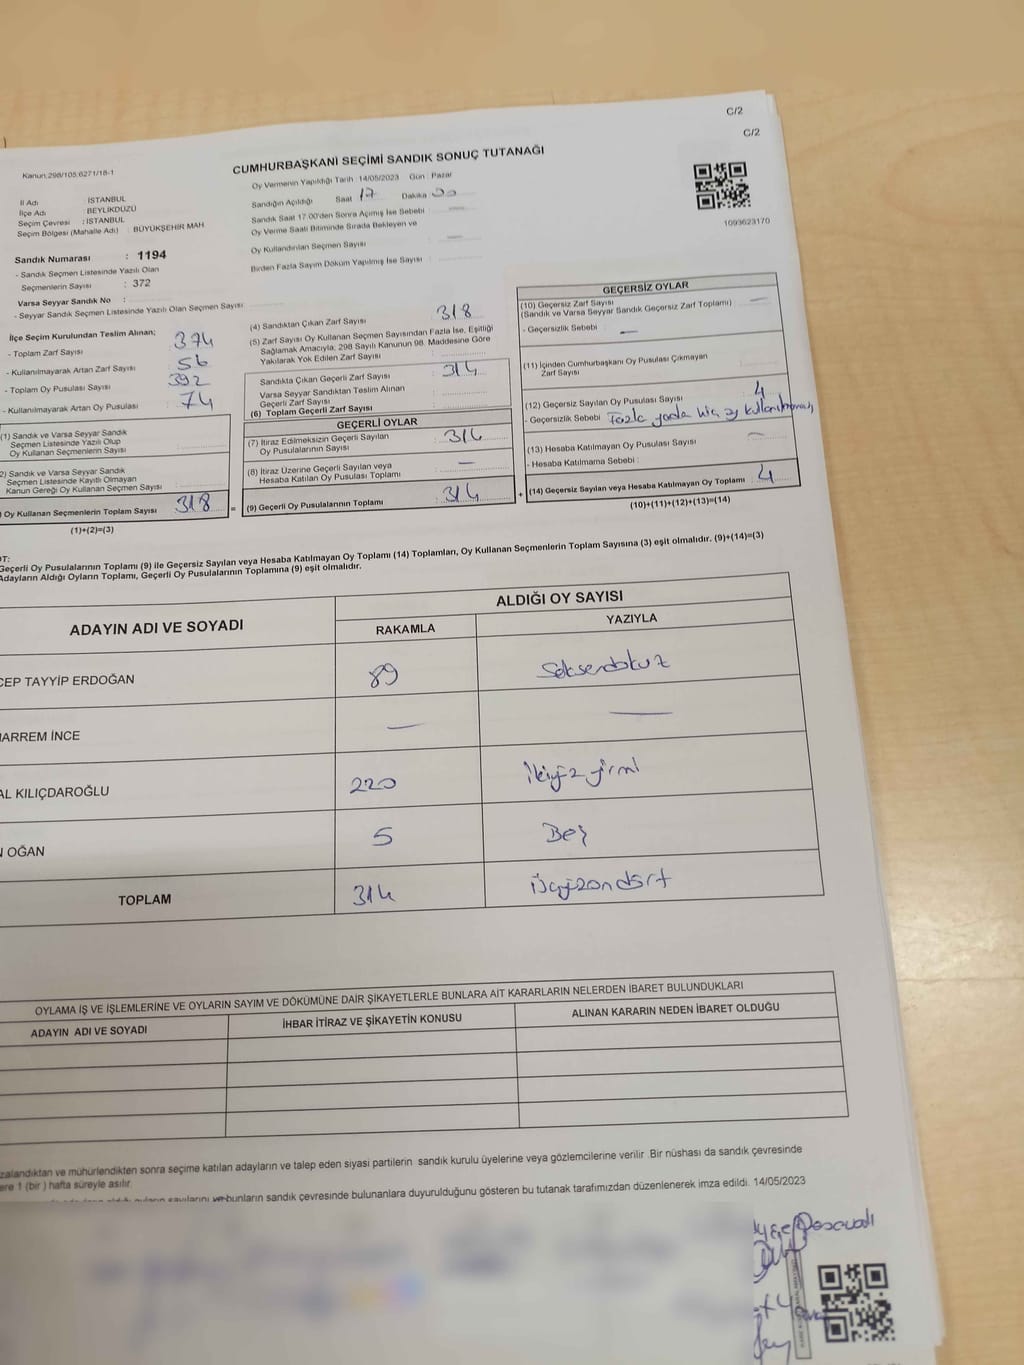 C/2
C/2
Kanun.298/105;6271/18-1
CUMHURBAŞKANİ SEÇİMİ SANDIK SONUÇ TUTANAĞI
İl Adı : İSTANBUL
İlçe Adı : BEYLİKDÜZÜ
Seçim Çevresi : İSTANBUL
Seçim Bölgesi (Mahalle Adı) : BÜYÜKŞEHİR MAH
Sandık Numarası : 1194
- Sandık Seçmen Listesinde Yazılı Olan
Seçmenlerin Sayısı : 372
Varsa Seyyar Sandık No :
- Seyyar Sandık Seçmen Listesinde Yazılı Olan Seçmen Sayısı
Oy Vermenin Yapıldığı Tarih : 14/05/2023 Gün : Pazar
Sandığın Açıldığı Saat 17 Dakika 00
Sandık Saat 17.00'den Sonra Açımış İse Sebebi
Oy Verme Saati Bitiminde Sırada Bekleyen ve
Oy Kullandırılan Seçmen Sayısı
Birden Fazla Sayım Döküm Yapılmış İse Sayısı
1093623170
İlçe Seçim Kurulundan Teslim Alınan;
- Toplam Zarf Sayısı 374
- Kullanılmayarak Artan Zarf Sayısı 56
- Toplam Oy Pusulası Sayısı 392
- Kullanılmayarak Artan Oy Pusulası 74
(1) Sandık ve Varsa Seyyar Sandık
Seçmen Listesinde Yazılı Olup
Oy Kullanan Seçmenlerin Sayısı
2) Sandık ve Varsa Seyyar Sandık
Seçmen Listesinde Kayıtlı Olmayan
Kanun Gereği Oy Kullanan Seçmen Sayısı
Oy Kullanan Seçmenlerin Toplam Sayısı 318 =
(1)+(2)=(3)
(4) Sandıktan Çıkan Zarf Sayısı 318
(5) Zarf Sayısı Oy Kullanan Seçmen Sayısından Fazla İse, Eşitliği
Sağlamak Amacıyla; 298 Sayılı Kanunun 98. Maddesine Göre
Yakılarak Yok Edilen Zarf Sayısı
Sandıkta Çıkan Geçerli Zarf Sayısı 314
Varsa Seyyar Sandıktan Teslim Alınan
Geçerli Zarf Sayısı
(6) Toplam Geçerli Zarf Sayısı
GEÇERLİ OYLAR
(7) İtiraz Edilmeksizin Geçerli Sayılan
Oy Pusulalarının Sayısı 314
(8) İtiraz Üzerine Geçerli Sayılan veya
Hesaba Katılan Oy Pusulası Toplamı —
(9) Geçerli Oy Pusulalarının Toplamı 314 +
GEÇERSİZ OYLAR
(10) Geçersiz Zarf Sayısı
(Sandık ve Varsa Seyyar Sandık Geçersiz Zarf Toplamı) —
- Geçersizlik Sebebi : —
(11) İçinden Cumhurbaşkanı Oy Pusulası Çıkmayan
Zarf Sayısı
(12) Geçersiz Sayılan Oy Pusulası Sayısı 4
- Geçersizlik Sebebi : Fazla yada hiç oy
(13) Hesaba Katılmayan Oy Pusulası Sayısı —
- Hesaba Katılmama Sebebi :
(14) Geçersiz Sayılan veya Hesaba Katılmayan Oy Toplamı 4
(10)+(11)+(12)+(13)=(14)
OT:
Geçerli Oy Pusulalarının Toplamı (9) ile Geçersiz Sayılan veya Hesaba Katılmayan Oy Toplamı (14) Toplamları, Oy Kullanan Seçmenlerin Toplam Sayısına (3) eşit olmalıdır. (9)+(14)=(3)
Adayların Aldığı Oyların Toplamı, Geçerli Oy Pusulalarının Toplamına (9) eşit olmalıdır.
ADAYIN ADI VE SOYADI
ALDIĞI OY SAYISI
RAKAMLA YAZIYLA
CEP TAYYİP ERDOĞAN 89 Seksendokuz
ARREM İNCE — —
AL KILIÇDAROĞLU 220 ikiyüz yirmi
OĞAN 5 Beş
TOPLAM 314 üçyüzondört
OYLAMA İŞ VE İŞLEMLERİNE VE OYLARIN SAYIM VE DÖKÜMÜNE DAİR ŞİKAYETLERLE BUNLARA AİT KARARLARIN NELERDEN İBARET BULUNDUKLARI
ADAYIN ADI VE SOYADI İHBAR İTİRAZ VE ŞİKAYETİN KONUSU ALINAN KARARIN NEDEN İBARET OLDUĞU
zalandıktan ve mühürlendikten sonra seçime katılan adayların ve talep eden siyasi partilerin sandık kurulu üyelerine veya gözlemcilerine verilir .Bir nüshası da sandık çevresinde
ere 1 (bir ) hafta süreyle asılır.
bunların sandık çevresinde bulunanlara duyurulduğunu gösteren bu tutanak tarafımızdan düzenlenerek imza edildi. 14/05/2023